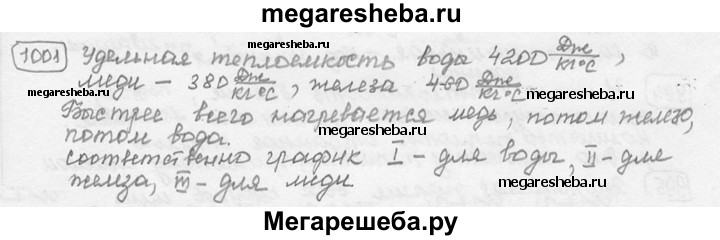 megaresheba.ru
1001 Удельная теплоемкость вода 4200 Дж/кг°С,
меди – 380 Дж/кг°С, железа 460 Дж/кг°С
Быстрее всего нагревается медь, потом железо,
потом вода.
соответственно график I – для воды, II – для
железа, III – для меди
megaresheba.ru
megaresheba.ru
megaresheba.ru
megaresheba.ru
megaresheba.ru
Мегарешеба.ру